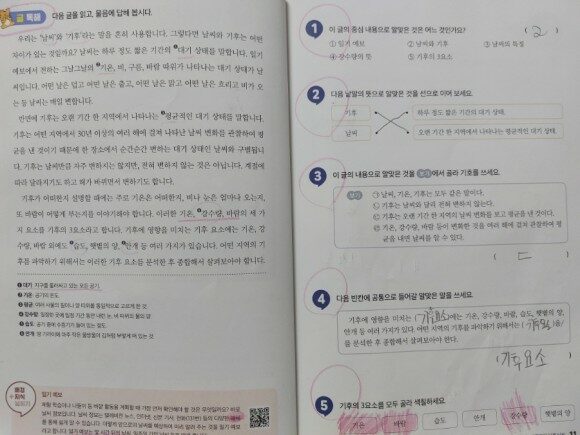 글 독해
다음 글을 읽고, 물음에 답해 봅시다.
우리는 '날씨'와 '기후'라는 말을 흔히 사용합니다. 그렇다면 날씨와 기후는 어떤
차이가 있는 것일까요? 날씨는 하루 정도 짧은 기간의 ❶대기 상태를 말합니다. 일기
예보에서 전하는 그날그날의 ❷기온, 비, 구름, 바람 따위가 나타나는 대기 상태가 날
씨입니다. 어떤 날은 덥고 어떤 날은 춥고, 어떤 날은 맑고 어떤 날은 흐리고 비가 오
는 등 날씨는 매일 변합니다.
반면에 기후는 오랜 기간 한 지역에서 나타나는 ❸평균적인 대기 상태를 말합니다.
기후는 어떤 지역에서 30년 이상의 여러 해에 걸쳐 나타난 날씨 변화를 관찰하여 평
균을 낸 것이기 때문에 한 장소에서 순간순간 변하는 대기 상태인 날씨와 구별됩니
다. 기후는 날씨만큼 자주 변하지는 않지만, 전혀 변하지 않는 것은 아닙니다. 계절에
따라 달라지기도 하고 해가 바뀌면서 변하기도 합니다.
기후가 어떠한지 설명할 때에는 주로 기온은 어떠한지, 비나 눈은 얼마나 오는지,
또 바람이 어떻게 부는지를 이야기해야 합니다. 이러한 기온, ❹강수량, 바람의 세 가
지 요소를 기후의 3요소라고 합니다. 기후에 영향을 미치는 기후 요소에는 기온, 강
수량, 바람 외에도 ❺습도, 햇볕의 양, ❻안개 등 여러 가지가 있습니다. 어떤 지역의 기
후를 파악하기 위해서는 이러한 기후 요소를 분석한 후 종합해서 살펴보아야 합니다.
❶ 대기: 지구를 둘러싸고 있는 모든 공기.
❷ 기온: 공기의 온도.
❸ 평균: 여러 사물의 질이나 양 따위를 통일적으로 고르게 한 것.
❹ 강수량: 일정한 곳에 일정 기간 동안 내린 눈, 비 따위의 물의 양.
❺ 습도: 공기 중에 수증기가 들어 있는 정도.
배경
+지식
넓히기
일기 예보
1 이 글의 중심 내용으로 알맞은 것은 어느 것인가요? ( 2 )
① 일기 예보 ② 날씨와 기후 ③ 날씨의 특징
④ 강수량의 뜻 ⑤ 기후의 3요소
2 다음 낱말의 뜻으로 알맞은 것을 선으로 이어 보세요.
기후 하루 정도 짧은 기간의 대기 상태.
날씨 오랜 기간 한 지역에서 나타나는 평균적인 대기 상태.
3 이 글의 내용으로 알맞은 것을 보기에서 골라 기호를 쓰세요.
보기
㉠ 날씨, 기온, 기후는 모두 같은 말이다.
㉡ 기후는 날씨와 달리 전혀 변하지 않는다.
㉢ 기후는 오랜 기간 한 지역의 날씨 변화를 보고 평균을 낸 것이다.
㉣ 기온, 강수량, 바람 등이 변화한 것을 여러 해에 걸쳐 관찰하여 평
균을 내면 날씨를 알 수 있다.
( ㄷ )
4 다음 빈칸에 공통으로 들어갈 알맞은 말을 쓰세요.
기후에 영향을 미치는 ( 기후요소 )에는 기온, 강수량, 바람, 습도, 햇볕의 양,
안개 등 여러 가지가 있다. 어떤 지역의 기후를 파악하기 위해서는 ( 기후요소 )
을 분석한 후 종합해서 살펴보아야 한다.
( 기후 요소 )
5 기후의 3요소를 모두 골라 색칠하세요.
기온 바람 습도 안개 강수량 햇볕의 양
11